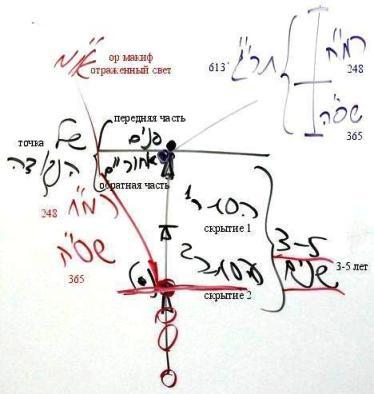 או"מ
ор макиф
отраженный свет
613
תרי"ג
רמ"ח
248
שס"ה
365
передняя часть
פנים
точка
של
הנקודה
אחוריים
обратная часть
רמ"ח
248
שס"ה
365
הסתר 1
скрытие 1
הסתר 2
скрытие 2
(0)
3-5
שנים
3-5 лет